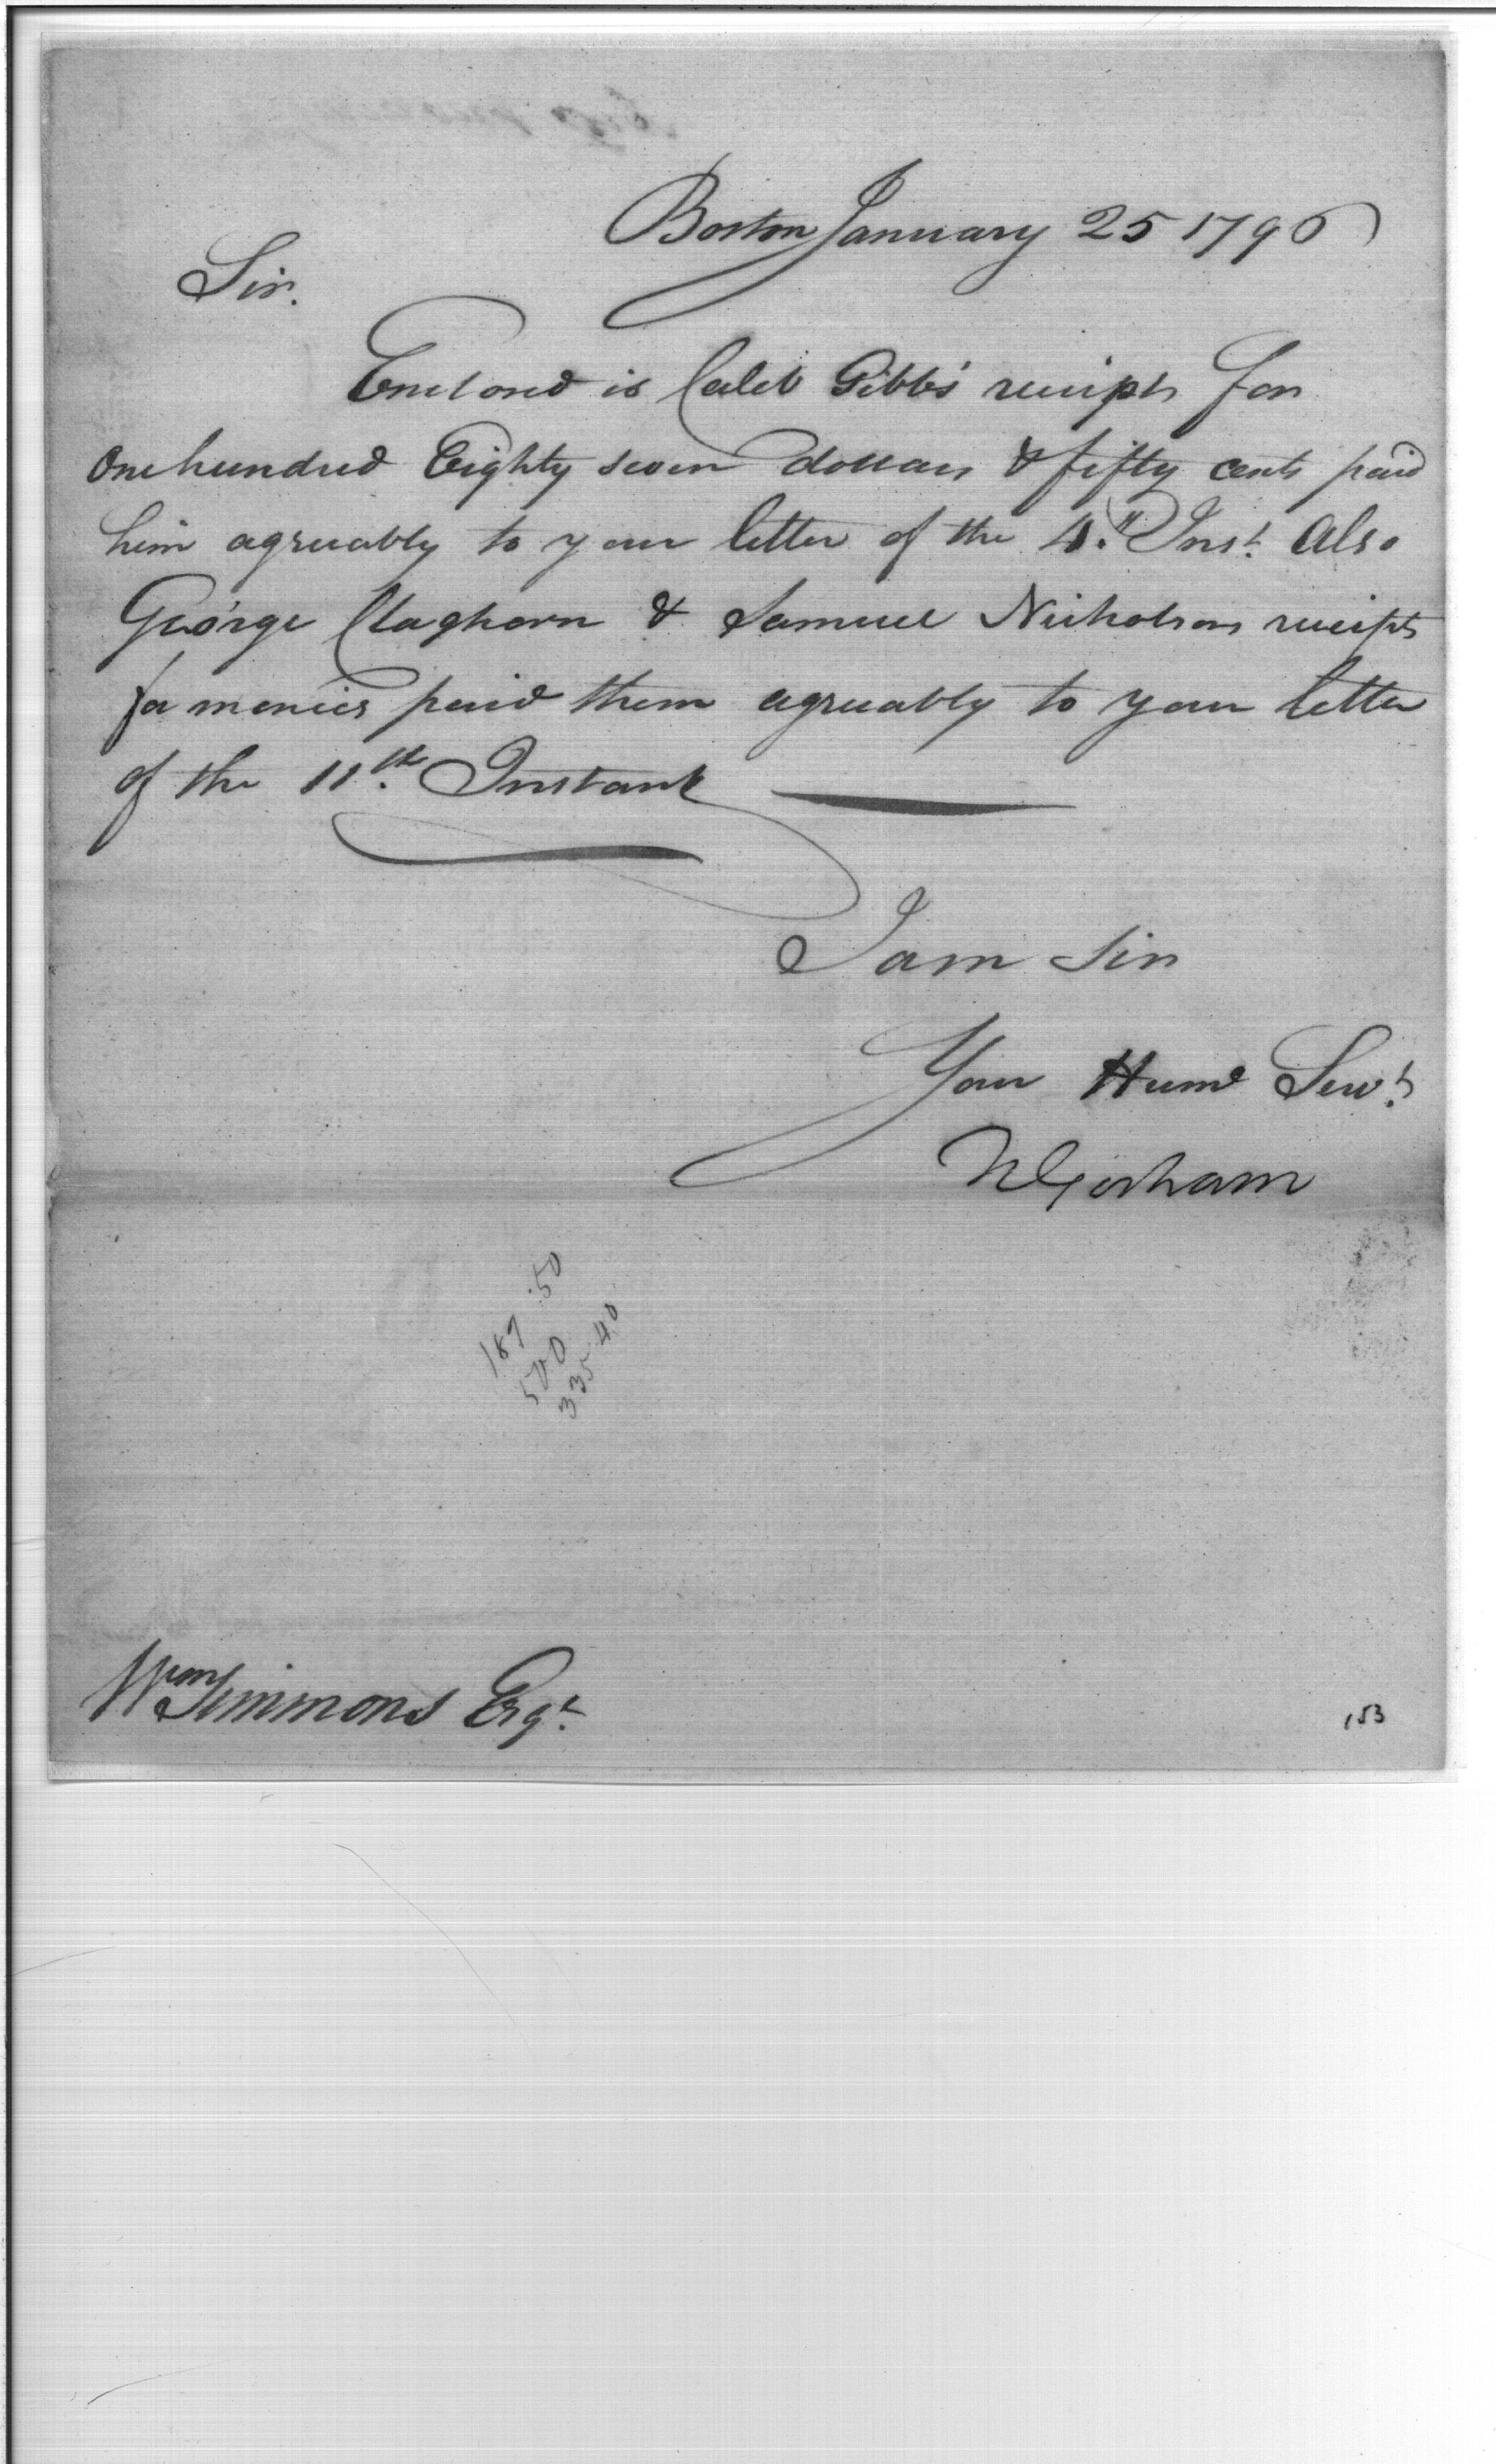 Boston January 25 1796
Sir.
Enclosed is Caleb Gibbs' receipts for
One hundred Eighty seven dollars & fifty cents paid
him agreeably to your letter of the 4.th Inst. Also
George Claghorn & Samuel Nicholson receipts
for monies paid them agreeably to your letter
of the 11.th Instant
I am Sir
Your Hume Servt.
N Gorham
187.50
500
335 40
Wm Simmons Esqr.
153